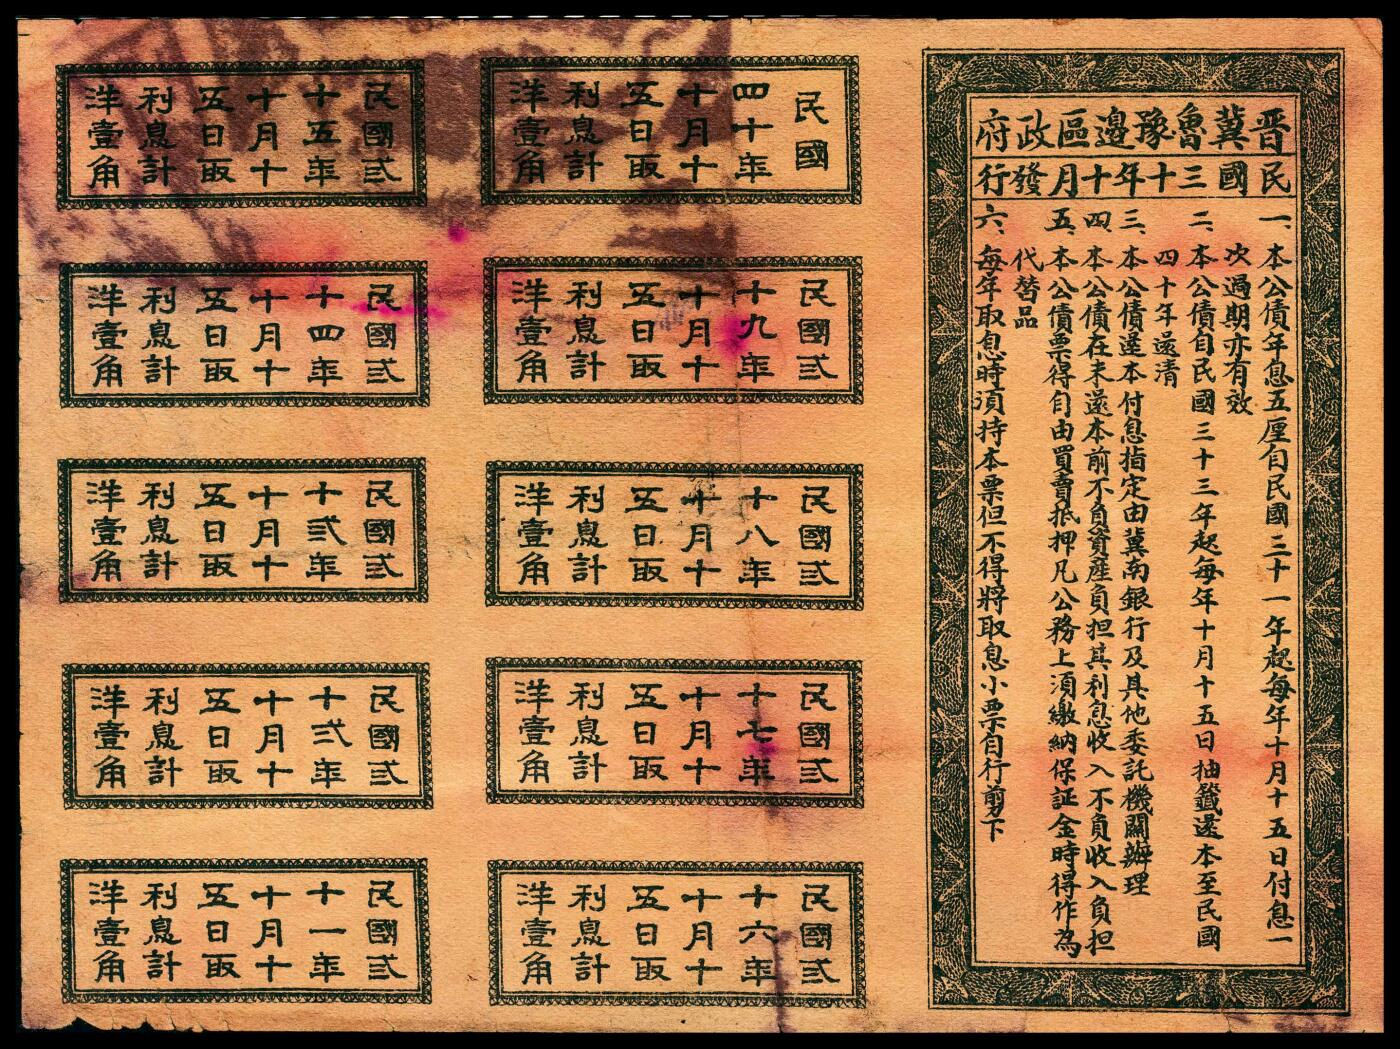 晋冀魯豫邊區政府
民國三十年十月發行
一、本公債年息五厘自民國三十一年起每年十月十五日付息一
次過期亦有效
二、本公債自民國三十三年起每年十月十五日抽籤還本至民國
四十年還清
三、本公債還本付息指定由冀南銀行及其他委託機關辦理
四、本公債在未還本前不負資產負担其利息收入不負收入負担
五、本公債票得自由買賣抵押凡公務上須繳納保証金時得作為
代替品
六、每年取息時須持本票但不得將取息小票自行剪下
民國
四十年
十月十
五日取
利息計
洋壹角
民國弎
十九年
十月十
五日取
利息計
洋壹角
民國弎
十八年
十月十
五日取
利息計
洋壹角
民國弎
十七年
十月十
五日取
利息計
洋壹角
民國弎
十六年
十月十
五日取
利息計
洋壹角
民國弎
十五年
十月十
五日取
利息計
洋壹角
民國弎
十四年
十月十
五日取
利息計
洋壹角
民國弎
十弎年
十月十
五日取
利息計
洋壹角
民國弎
十弍年
十月十
五日取
利息計
洋壹角
民國弎
十一年
十月十
五日取
利息計
洋壹角